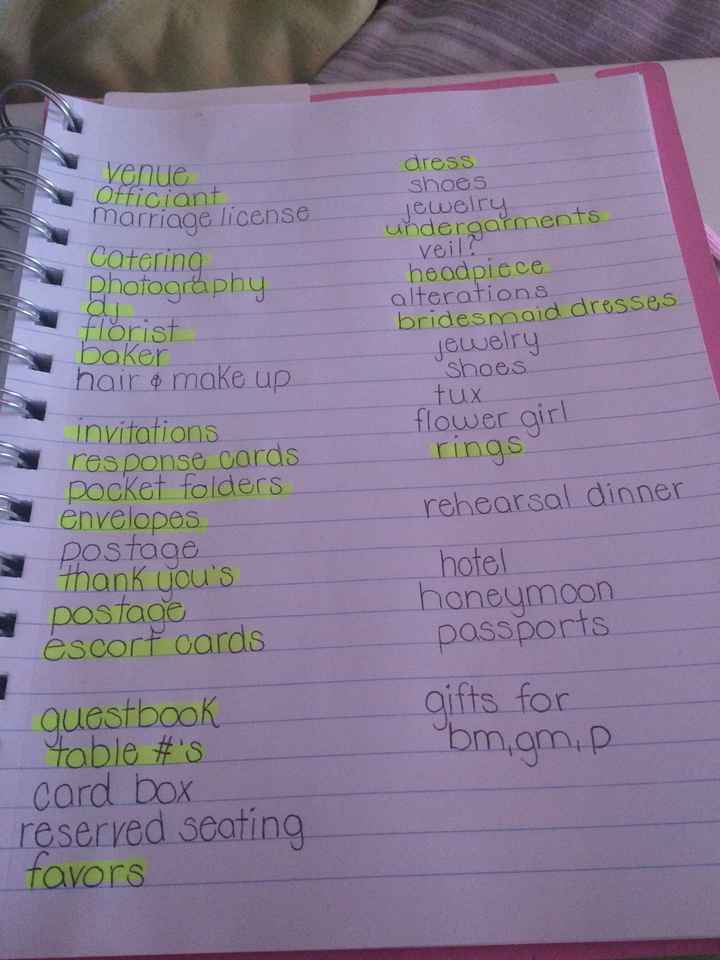 venue
officiant
marriage license
catering
photography
dj
florist
baker
hair & make up
invitations
response cards
pocket folders
envelopes
postage
thank you's
postage
escort cards
guestbook
table #'s
card box
reserved seating
favors
dress
shoes
jewelry
undergarments
veil?
headpiece
alterations
bridesmaid dresses
jewelry
shoes
tux
flower girl
rings
rehearsal dinner
hotel
honeymoon
passports
gifts for
bm, gm, p